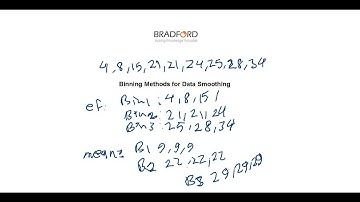 BRADFORD
4,8,15,21,21,24,25,28,34
Binning Methods for Data Smoothing
ef: Bin1: 4,8,15)
Bin2: 21,21,24
Bin3: 25,28,34
means B1 9,9,9
B2 22,22,22
B3 29,29,29